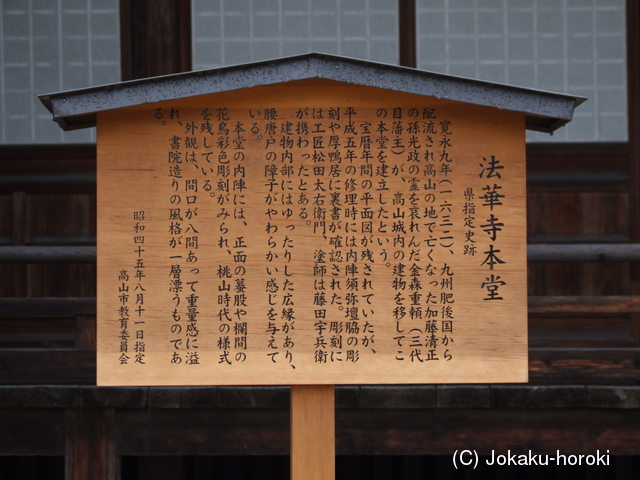 法華寺本堂
県指定史跡
寛永九年(一六三二)、九州肥後国から
配流され高山の地で亡くなった加藤清正
の孫光政の霊を哀れんだ金森重頼(三代
目藩主)が、高山城内の建物を移してこ
の本堂を建立したという。
宝暦年間の平面図が残されていたが、
平成五年の修理時には内陣須弥壇脇の彫
刻や厚鴨居に裏書が確認された。彫刻に
は工匠松田太右衛門、塗師は藤田宇兵衛
が携わったとある。
建物内部にはゆったりした広縁があり、
腰唐戸の障子がやわらかい感じを与えて
いる。
本堂の内陣には、正面の蟇股や欄間の
花鳥彩色彫刻がみられ、桃山時代の様式
を残している。
外観は、間口が八間あって重量感に溢
れ、書院造りの風格が一層漂うものであ
る。
昭和四十五年八月十一日指定
高山市教育委員会
(C) Jokaku-horoki